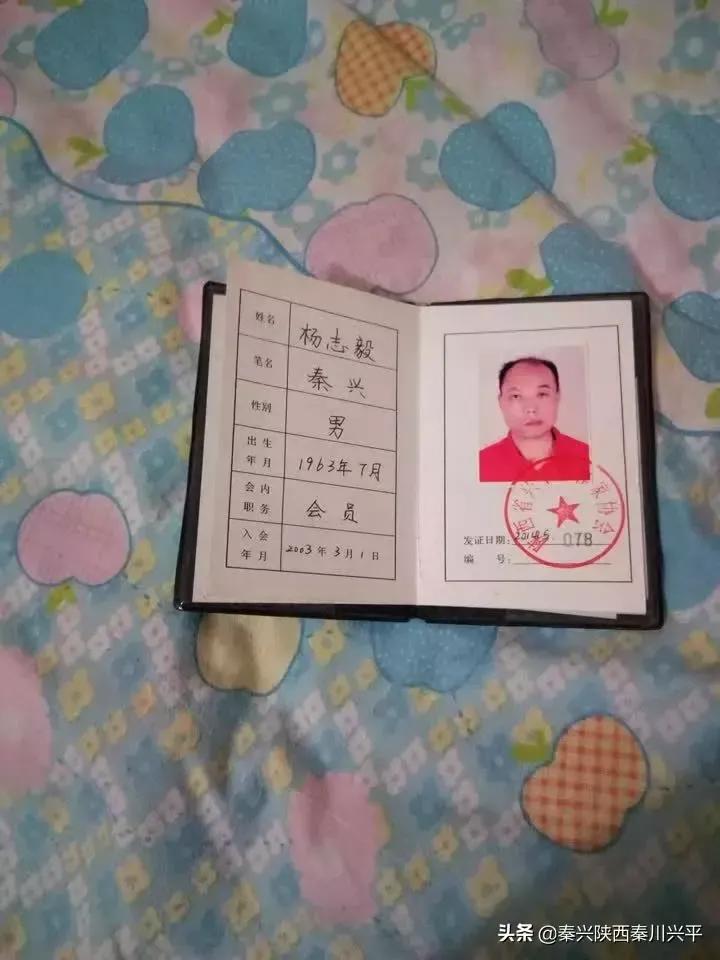 姓名 杨志毅
笔名 秦兴
性别 男
出生
年月 1963年7月
会内
职务 会员
入会
年月 2003年3月1日
陕西省兴 家协会
发证日期: 2014.5.
编 号: 078
头条 @秦兴陕西秦川兴平